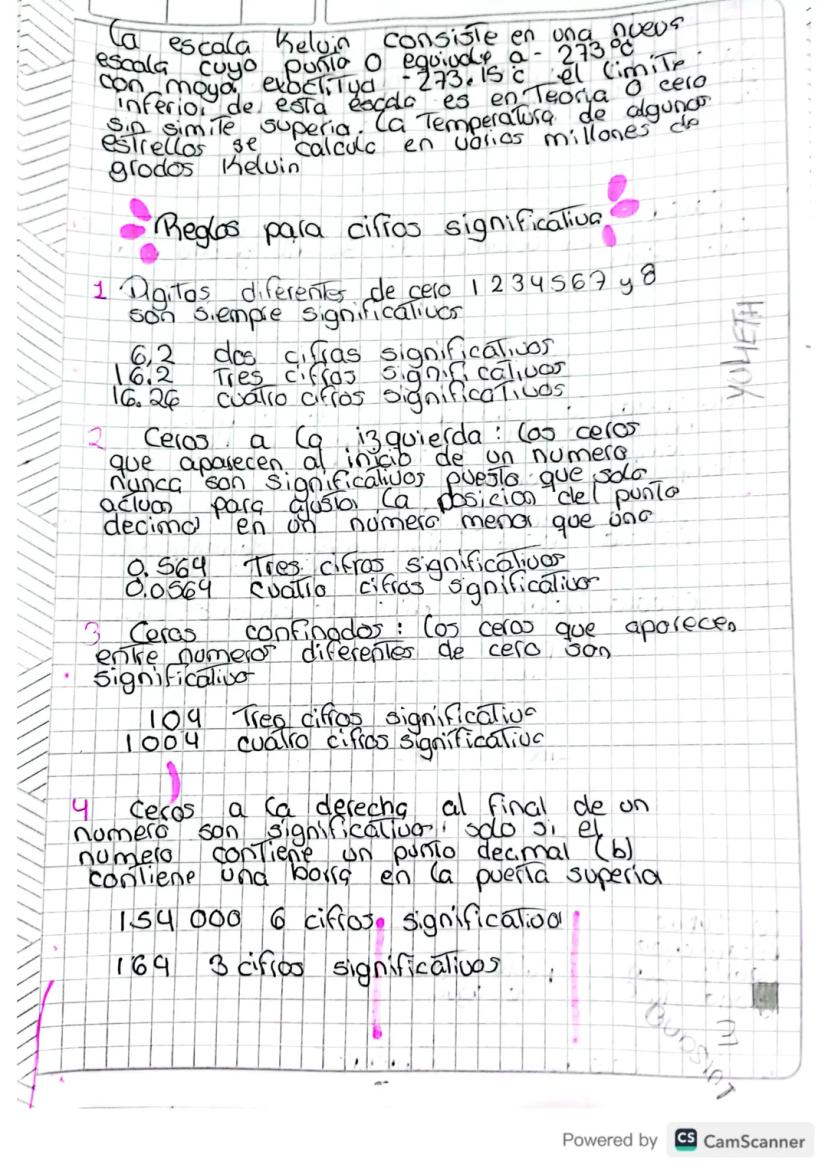 La escala Kelvin consiste en una nueva
escala cuyo punto 0 equivale a - 273 °C
con mayor exactitud -273.15 c el limite
inferior de esta escala es en Teoria 0 cero
sin simite superia. La Temperatura de algunas
estrellas se calcula en varios millones de
grados Kelvin
Reglas para cifras significativa
1 Digitos diferentes de cero 1 2 3 4 5 6 7 y 8
son siempre significativos
6,2 dos cifras significativos
16.2 Tres cifras significativas
16.26 cuatro cifras significativas
2 Ceros a la izquierda: Los ceros
que aparecen al inicio de un numero
nunca son significativos puesto que solo
actuan para ajustar la posicion del punto
decimal en un numero menor que uno
0.564 Tres cifras significativas
0.0564 cuatro cifras significativas
3 Ceros confinados: Los ceros que aparecen
entre numeros diferentes de cero son
significativo
104 Tres cifras significativa
1004 cuatro cifras significativa
4 Ceros a la derecha al final de un
numero son significativa, solo si el
numero contiene un punto decimal (b)
contiene una barra en la puerta superia
154 000 6 cifras significativa
164 3 cifras significativos
YULIETH
Powered by CS CamScanner